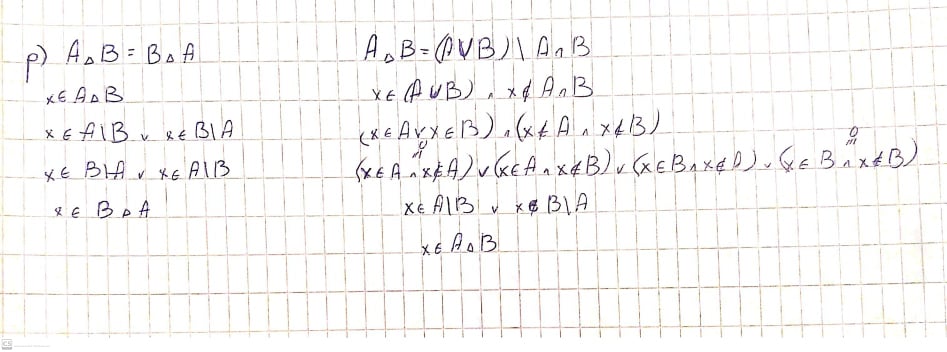 p) A △ B = B △ A
x ∈ A △ B
x ∈ A \ B ∨ x ∈ B \ A
x ∈ B \ A ∨ x ∈ A \ B
x ∈ B △ A
A △ B = (A ∪ B) \ A ∩ B
x ∈ (A ∪ B) ∧ x ∉ A ∩ B
(x ∈ A ∨ x ∈ B) ∧ (x ∉ A ∧ x ∉ B)
0 0
(x ∈ A ∧ x ∉ A) ∨ (x ∈ A ∧ x ∉ B) ∨ (x ∈ B ∧ x ∉ A) ∨ (x ∈ B ∧ x ∉ B)
x ∈ A \ B ∨ x ∉ B \ A
x ∈ A △ B
CS